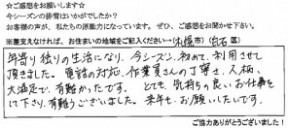 ☆ご感想をお願いします☆
今シーズンの排雪はいかがでしたか？
お客様の声が、私たちの原動力になっています。ぜひ、ご感想をお聞かせ下さい。
※差支えなければ、お住まいの地域をご記入ください→(札幌市) (白石区)
年寄り独りの生活になり、今シーズン初めて利用させて
頂きました。電話の対応、作業員さんの丁寧さ、人柄、
大満足で、有難かったです。とても気持ちの良いお仕事を
して下さり、有難うございました。来年もお願いしたいです。
ご協力ありがとうございました！